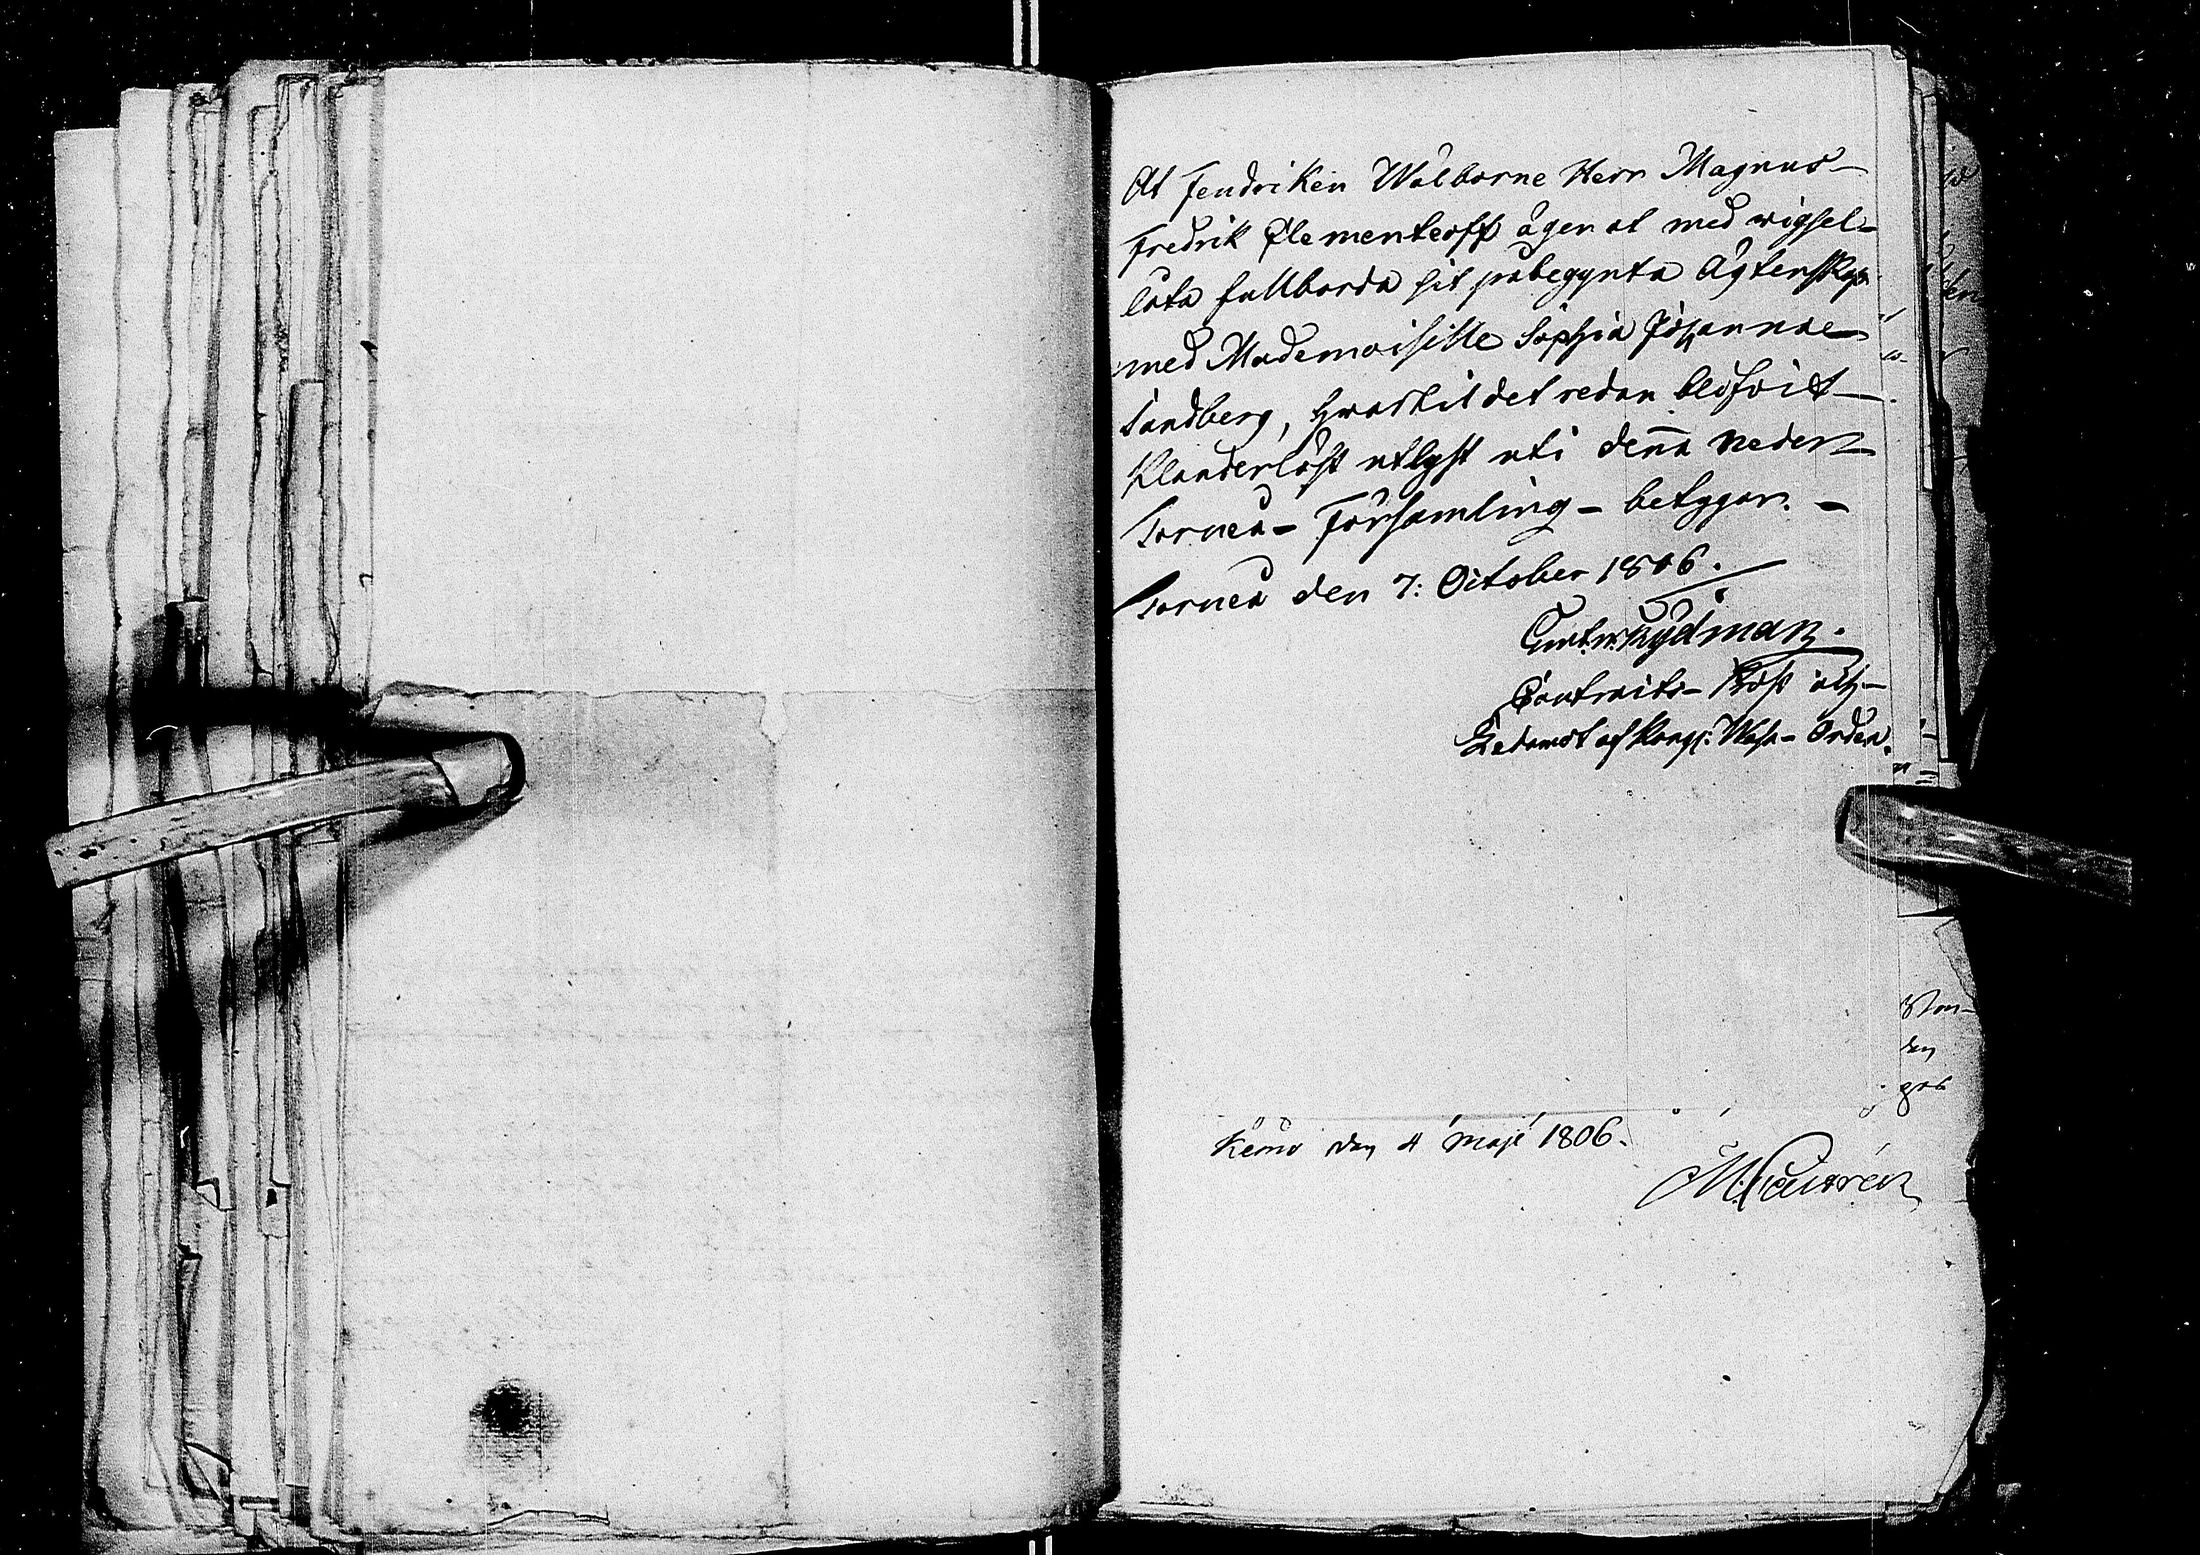 At Fendriken Wälborne Herr Magnus
Fredrik Clementeoff ägen at med wigsel
låta fullborda sit påbegynta Ägtenskap
med Mademoiselle Sophia Johanna
Sandberg, hwartil det redan blifvit
klanderlöst utlyst uti denna Neder
Torneå Församling betygar.
Torneå den 7: October 1806.
Gust. w. Rydman.
Contracts-Prost och
Ledamot af Kongl: Wasa-Orden.
den
Kemi den 4 Maji 1806.
M: Castrén